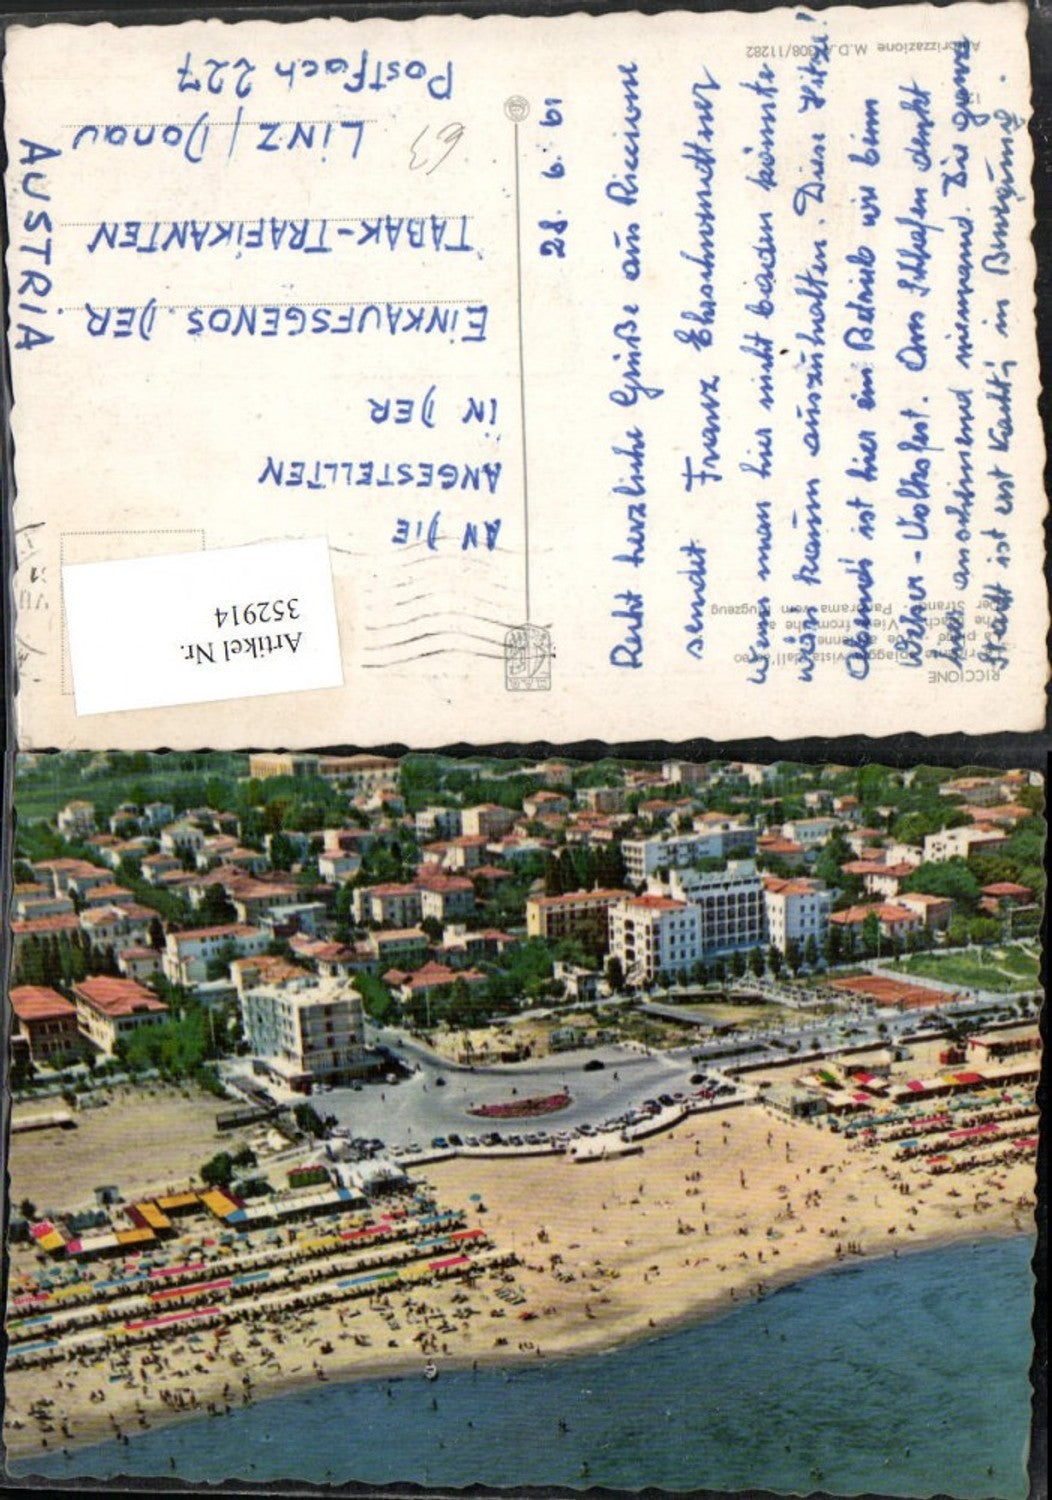 RICCIONE
The Beach - View from the a
Der Strand - Panorama vom Flugzeug
Autorizzazione M.D.A. 308/11282
28. 6. 61
Recht herzliche Grüße aus Riccione
sendet Franz
Wenn man hier nicht baden könnte
wär's kaum auszuhalten. Diese Hitze!
Abends ist hier ein Betrieb wie beim
Urfahr-Volksfest. Ans Schlafen denkt
hier anscheinend niemand. Die ganze
Stadt ist erst nachts in Bewegung.
AN DIE
ANGESTELLTEN
IN DER
EINKAUFSGENOS. DER
TABAK-TRAFIKANTEN
LINZ / Donau
Postfach 227
AUSTRIA
63
Artikel Nr.
352914